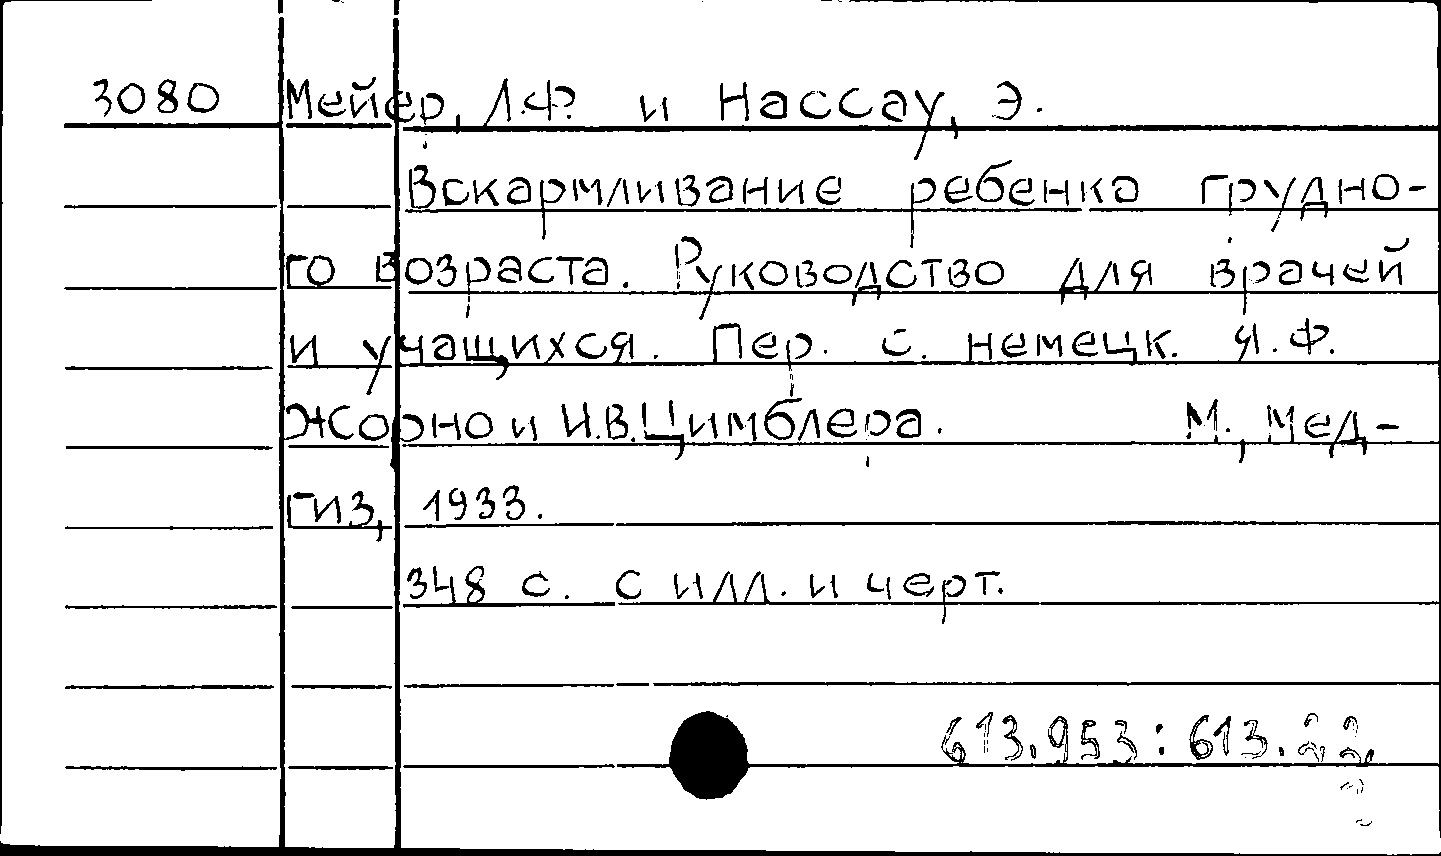 3080 Мейер, Л.Ф. и Нассау, Э.
Вскармливание ребенка грудно-
го возраста. Руководство для врачей
и учащихся. Пер. с. немецк. Я.Ф.
Жорно и И.В.Цимблера. М., Мед-
гиз, 1933.
348 с. с илл. и черт.
613.953:613.22.